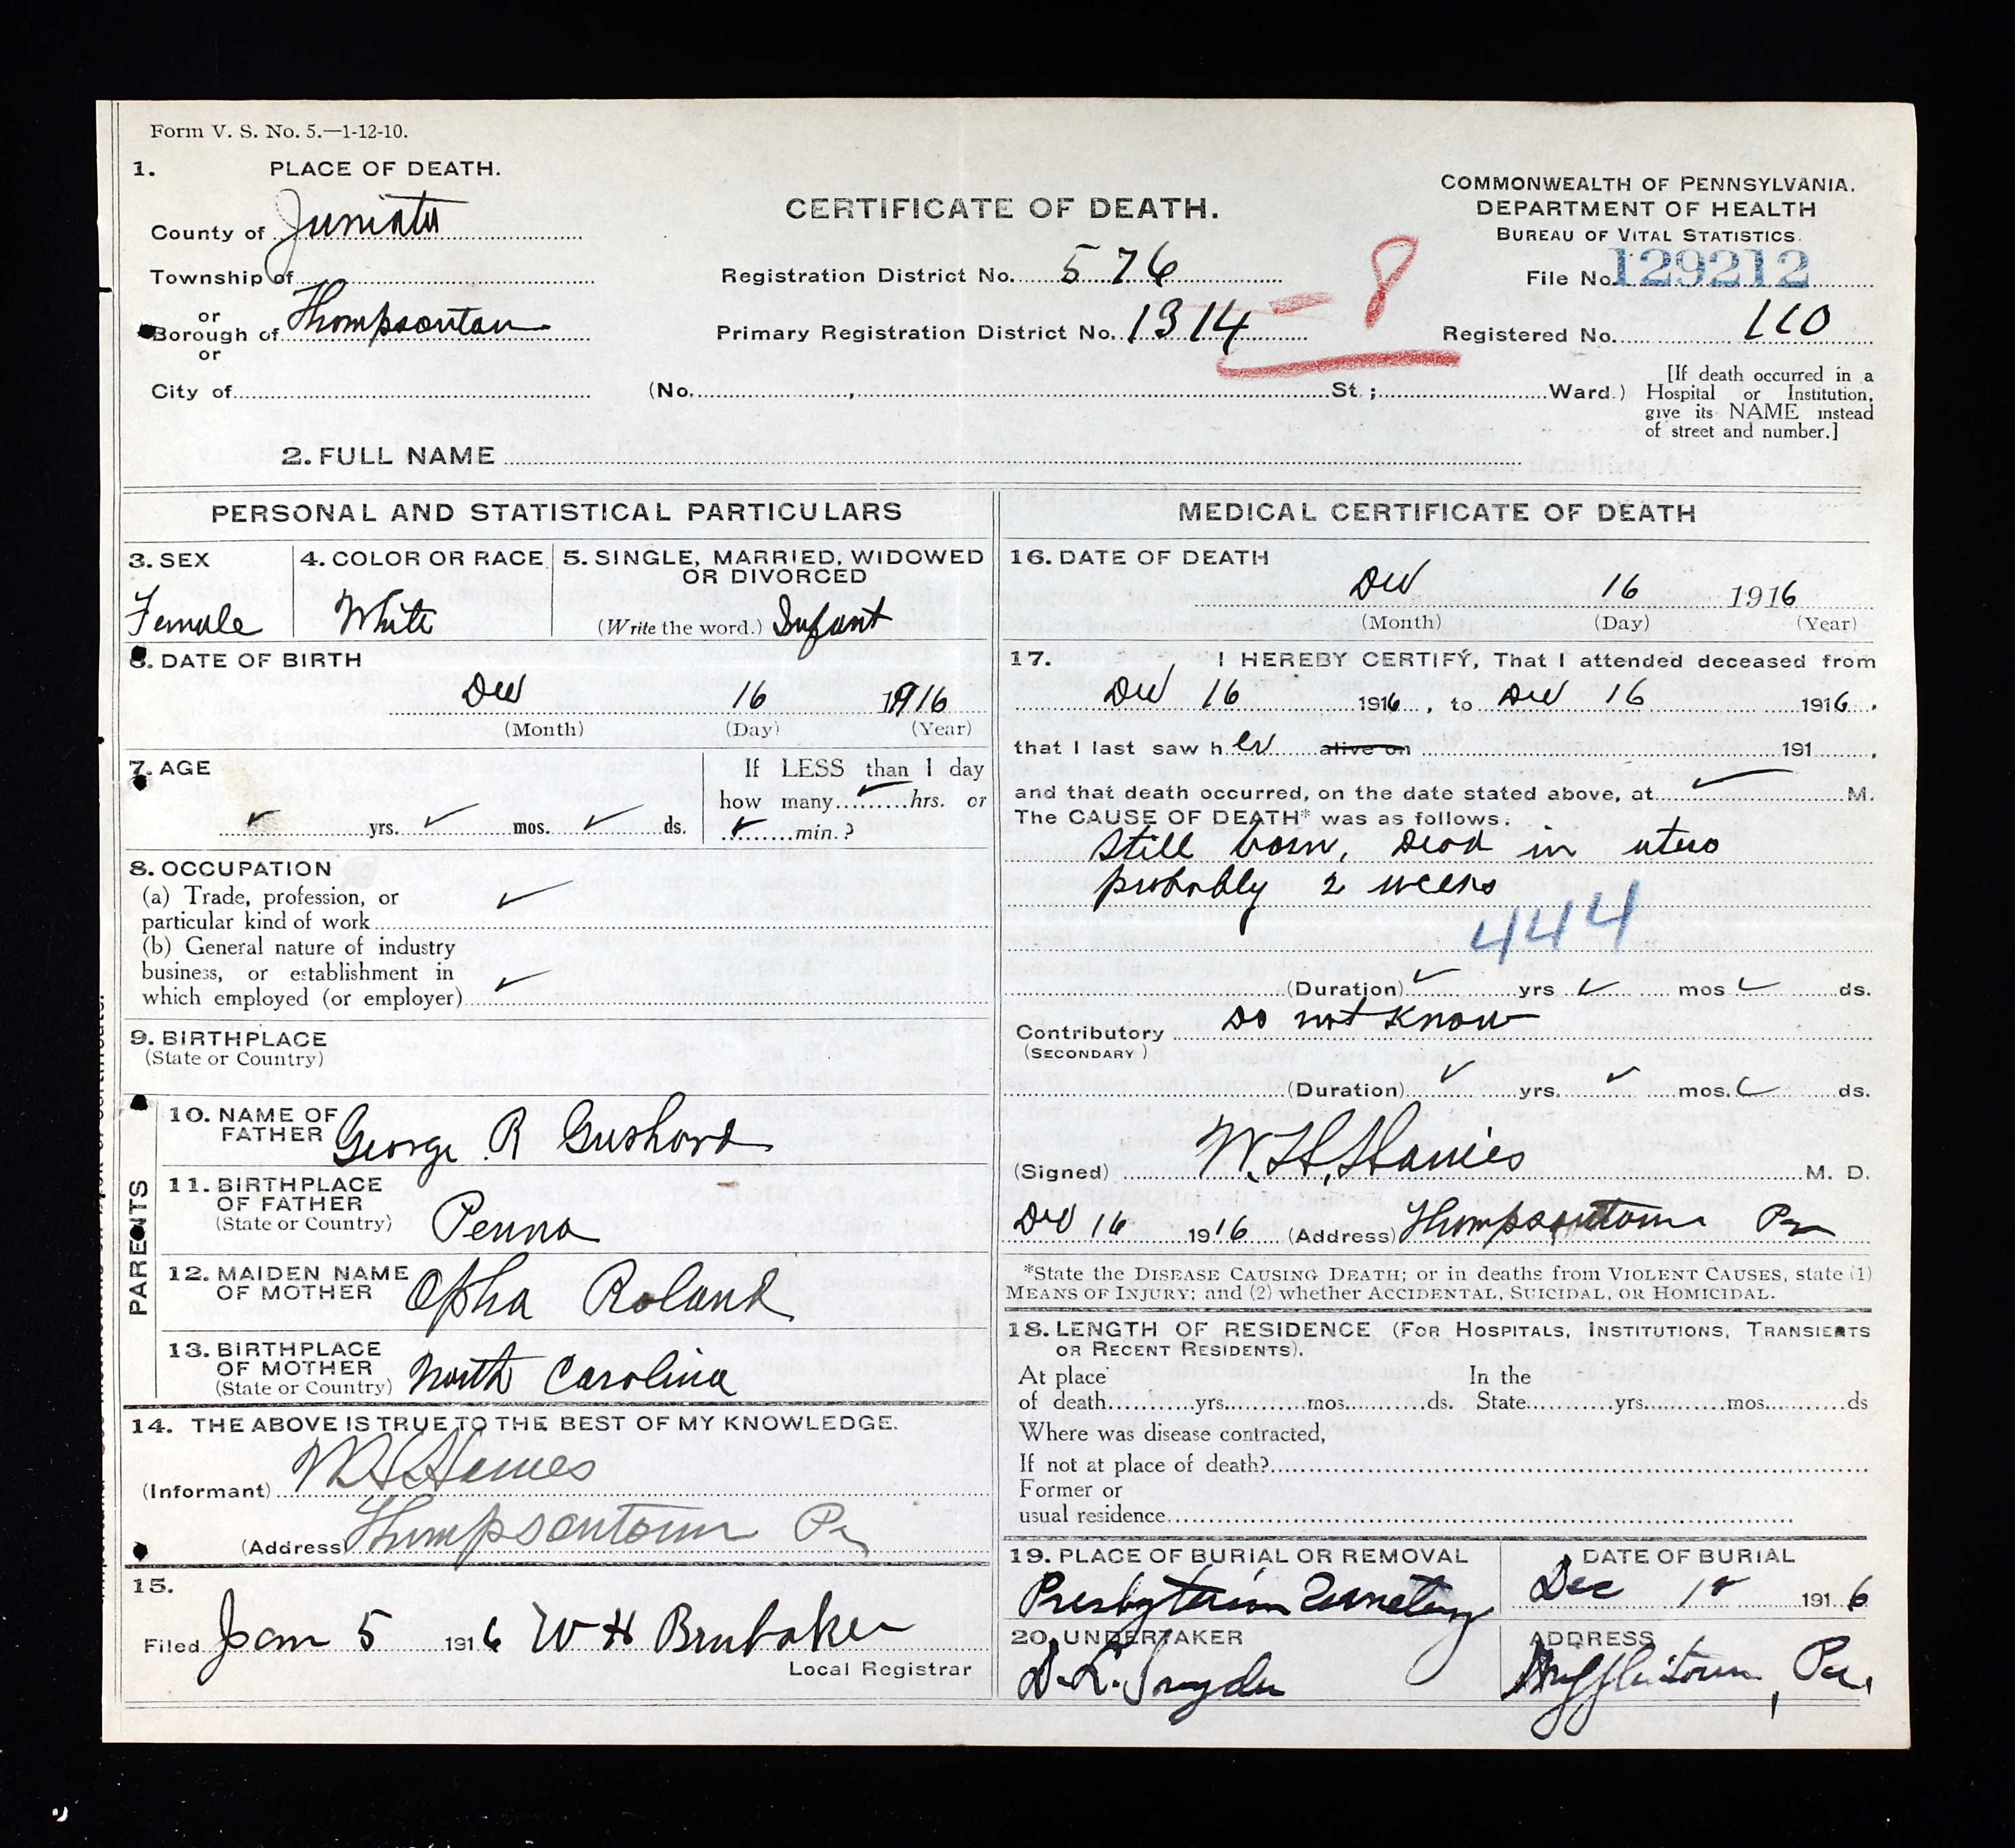 Form V. S. No. 5.—1-12-10.
1. PLACE OF DEATH.
County of Juniata
Township of
or
Borough of Thompsontown
or
City of
CERTIFICATE OF DEATH.
Registration District No. 576
Primary Registration District No. 1314 - 8
(No. , St.; Ward.)
COMMONWEALTH OF PENNSYLVANIA.
DEPARTMENT OF HEALTH
BUREAU OF VITAL STATISTICS.
File No. 129212
Registered No. 110
[If death occurred in a
Hospital or Institution,
give its NAME instead
of street and number.]
2. FULL NAME
PERSONAL AND STATISTICAL PARTICULARS
3. SEX
Female
4. COLOR OR RACE
White
5. SINGLE, MARRIED, WIDOWED
OR DIVORCED
(Write the word.) Infant
6. DATE OF BIRTH
Dec 16 1916
(Month) (Day) (Year)
7. AGE
yrs. mos. ds.
If LESS than 1 day
how many hrs. or
min.?
8. OCCUPATION
(a) Trade, profession, or
particular kind of work
(b) General nature of industry
business, or establishment in
which employed (or employer)
9. BIRTHPLACE
(State or Country)
PARENTS
10. NAME OF
FATHER George R Gushard
11. BIRTHPLACE
OF FATHER
(State or Country) Penna
12. MAIDEN NAME
OF MOTHER Opha Roland
13. BIRTHPLACE
OF MOTHER
(State or Country) North Carolina
14. THE ABOVE IS TRUE TO THE BEST OF MY KNOWLEDGE.
(Informant) W H Haines
(Address) Thompsontown Pa
15.
Filed Jan 5 1916 W H Brubaker
Local Registrar
MEDICAL CERTIFICATE OF DEATH
16. DATE OF DEATH
Dec 16 1916
(Month) (Day) (Year)
17. I HEREBY CERTIFY, That I attended deceased from
Dec 16 1916, to Dec 16 1916.
that I last saw her alive on 191 .
and that death occurred, on the date stated above, at M.
The CAUSE OF DEATH* was as follows:
Still born, Dead in utero
probably 2 weeks
444
(Duration) yrs mos ds.
Contributory Do not know
(SECONDARY)
(Duration) yrs. mos. ds.
(Signed) W. H. Haines M. D.
Dec 16 1916 (Address) Thompsontown Pa
*State the DISEASE CAUSING DEATH; or in deaths from VIOLENT CAUSES, state (1)
MEANS OF INJURY; and (2) whether ACCIDENTAL, SUICIDAL, OR HOMICIDAL.
18. LENGTH OF RESIDENCE (FOR HOSPITALS, INSTITUTIONS, TRANSIENTS
OR RECENT RESIDENTS).
At place In the
of death yrs. mos. ds. State yrs. mos. ds
Where was disease contracted,
If not at place of death?
Former or
usual residence
19. PLACE OF BURIAL OR REMOVAL
Presbyterian Cemetery
DATE OF BURIAL
Dec 1916
20. UNDERTAKER
D. L. Snyder
ADDRESS
Mifflintown, Pa.